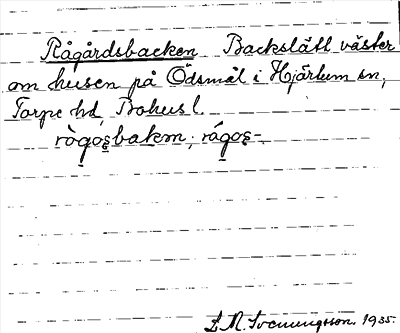 Rågårdsbacken Backslätt väster
om husen på Ödsmål i Hjärtum sn,
Torpe hd, Bohusl.
rògosbakm; rágos-.
1935.